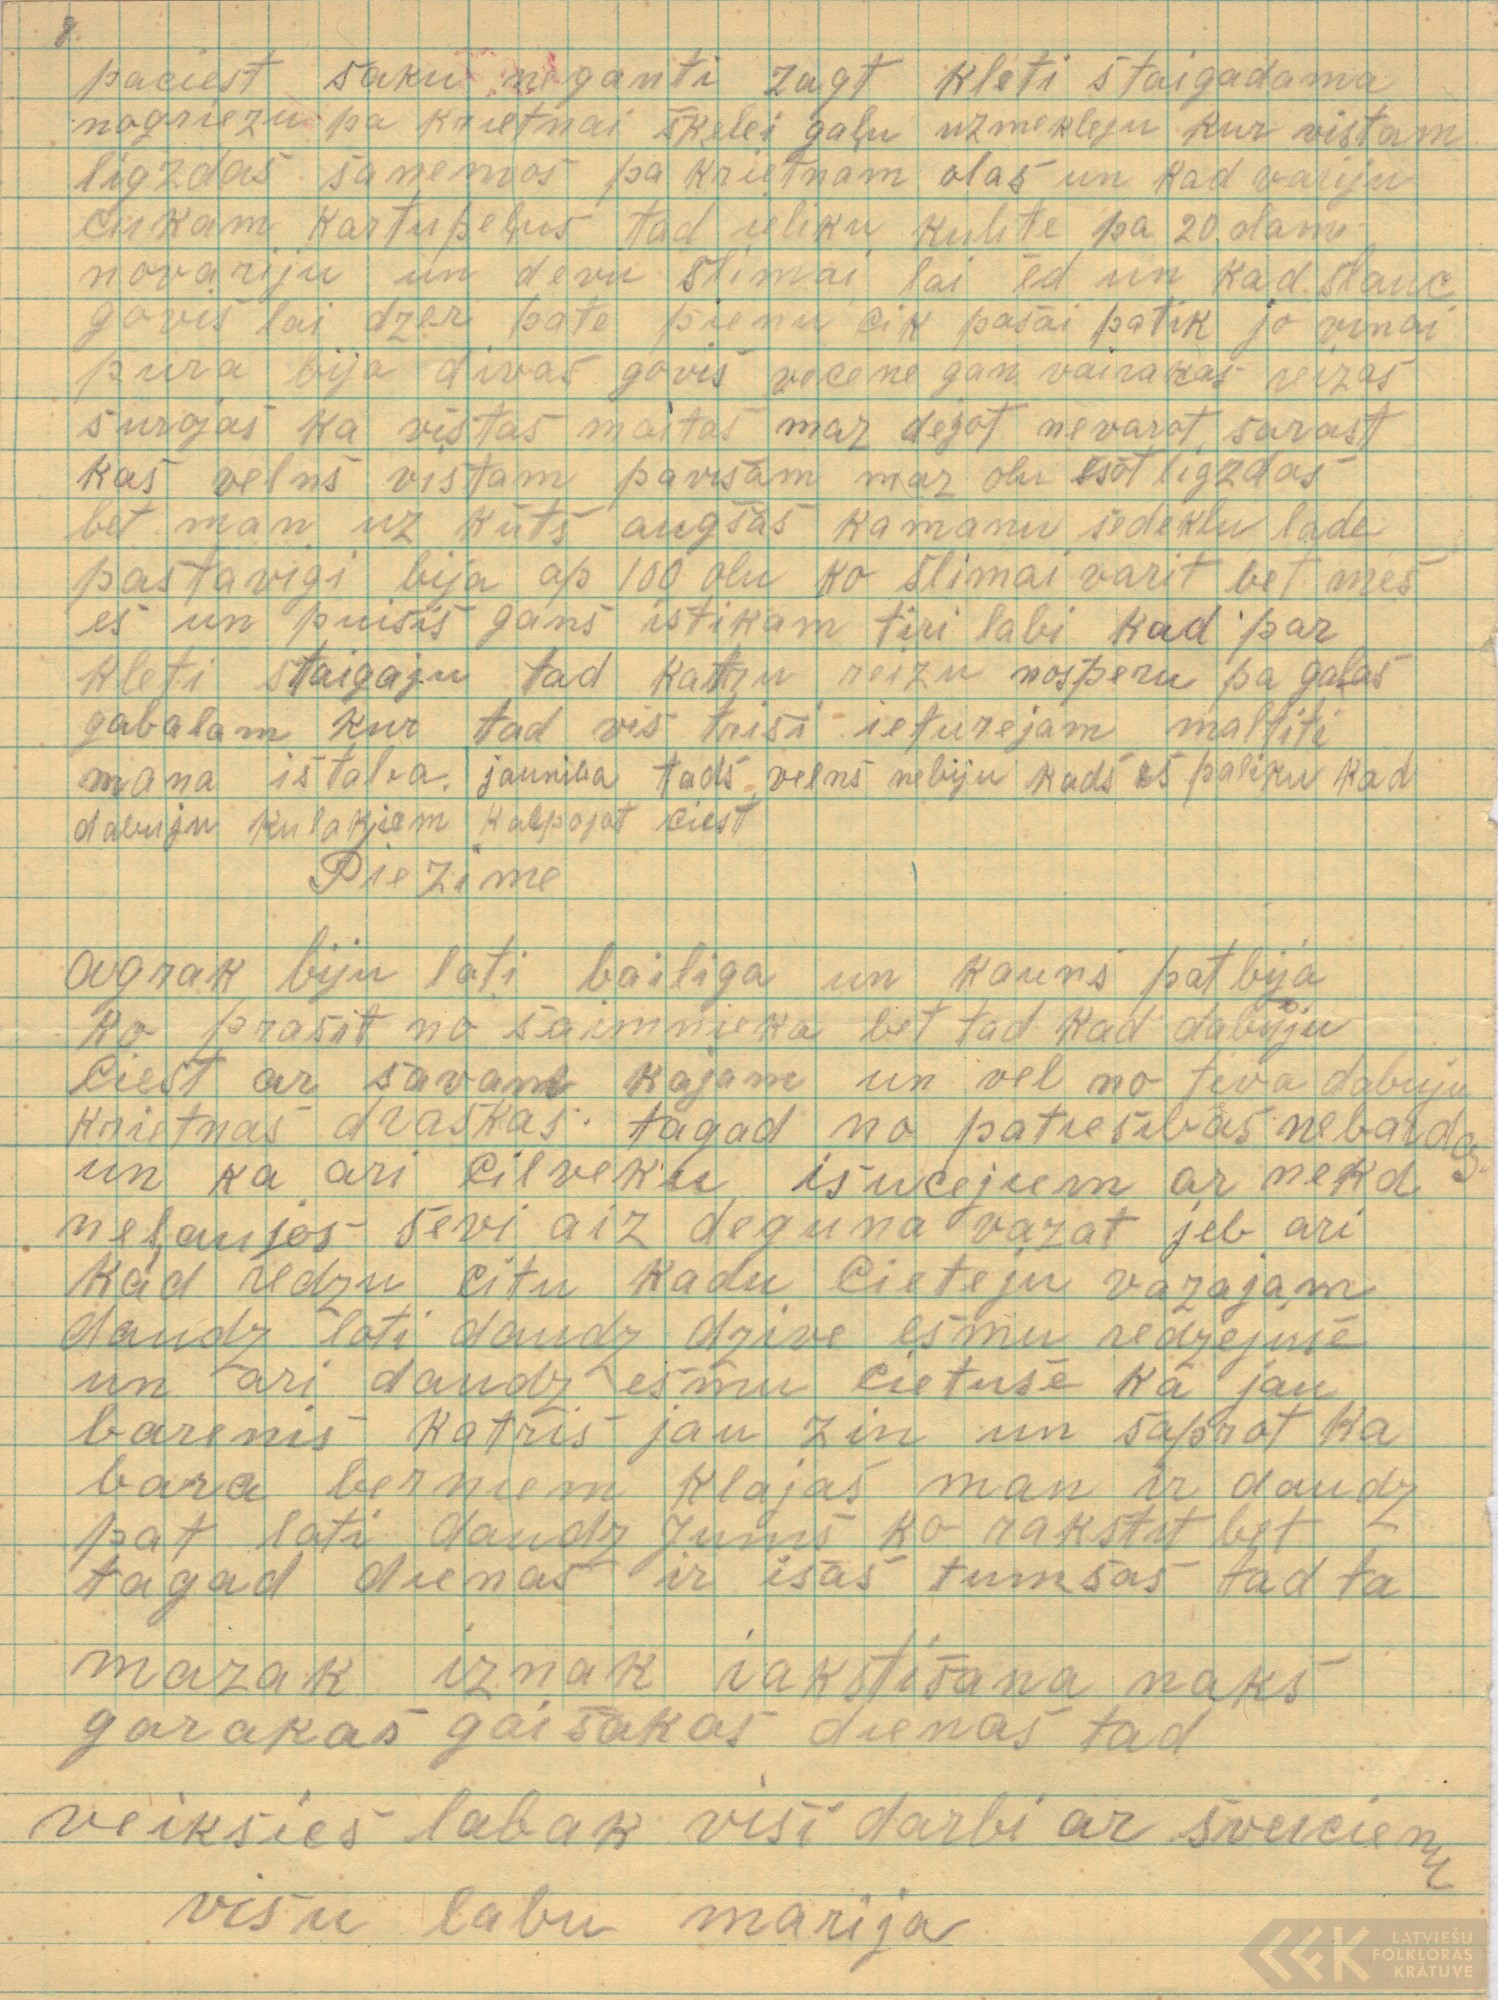 8.
paciest saku neganti zagt kleti staigadama
nogriezu pa krietnai šķelei gaļu uzmekleju kur vistam
ligzdas saņemos pa krietnam olas un kad variju
cukam kartupeļus tad ieliku kulite pa 20 olam
novariju un devu slimai lai ēd un kad slauc
govis lai dzer pate pienu cik pašai patik jo viņai
pura bija divas govis vecene gan vairakas reizas
šurojas ka vistas maitas maz dējot nevarot sarast
kas velns vistam pavisam maz olu esot ligzdas
bet man uz kūts augšas kamanu sedeklu lade
pastavigi bija ap 100 olu ko slimai varit bet mes
es un puisis gans istikam tiri labi kad par
kleti staigaju tad katru reizu nosperu pa galas
gabalam kur tad vis trisi ieturejam maltiti
mana istaba. jauniba tads velns nebiju kads es paliku kad
dabuju kulakiem kalpojot ciest
Piezime
agrak biju loti bailiga un kauns pat bija
ko prasit no saimnieka bet tad kad dabuju
Ciest ar savam kajam un vel no teva dabuju
krietnas draskas. tagad no patiesibas nebaidos
un ka ari cilveku isucejiem ar nekd
neļaujos sevi aiz deguna vazat jeb ari
kad redzu citu kadu Cieteju vazajam
daudz loti daudz dzive esmu redzejuse
un ari daudz esmu cietuse kā jau
barenis katris jau zin un saprot ka
bara berniem klajas man ir daudz
pat loti daudz Jums ko rakstit bet
tagad dienas ir isas tumsas tad ta
mazak iznak rakstišana naks
garakas gaišakas dienas tad
veiksies labak visi darbi ar sveicienu
visu labu marija
LATVIEŠU
FOLKLORAS
KRĀTUVE